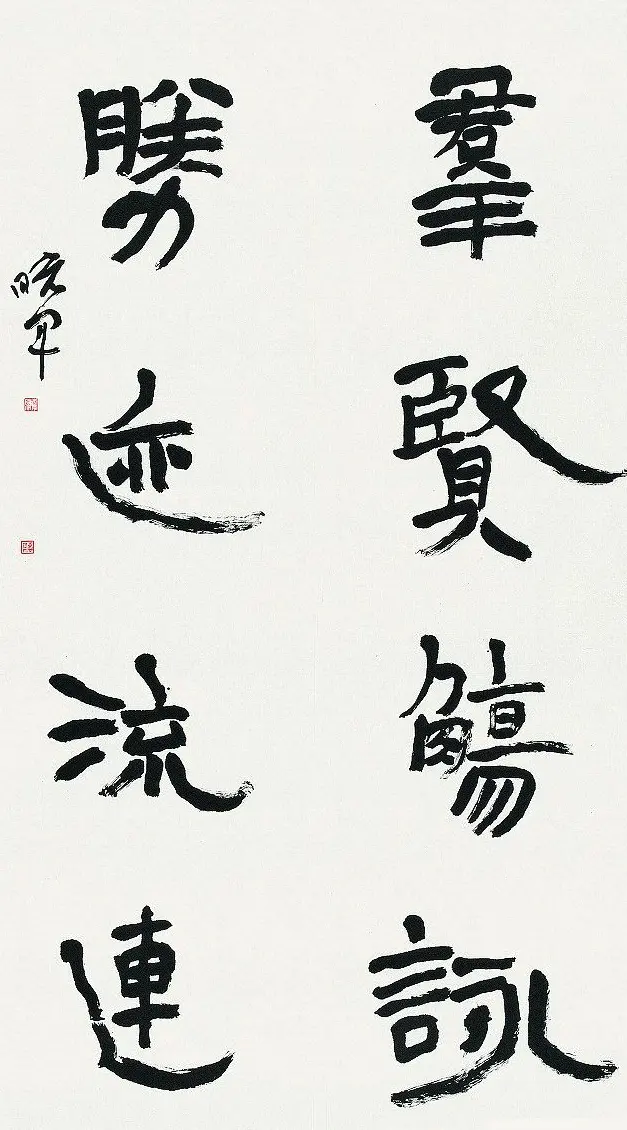 羣賢觴詠
勝迹流連
曉軍